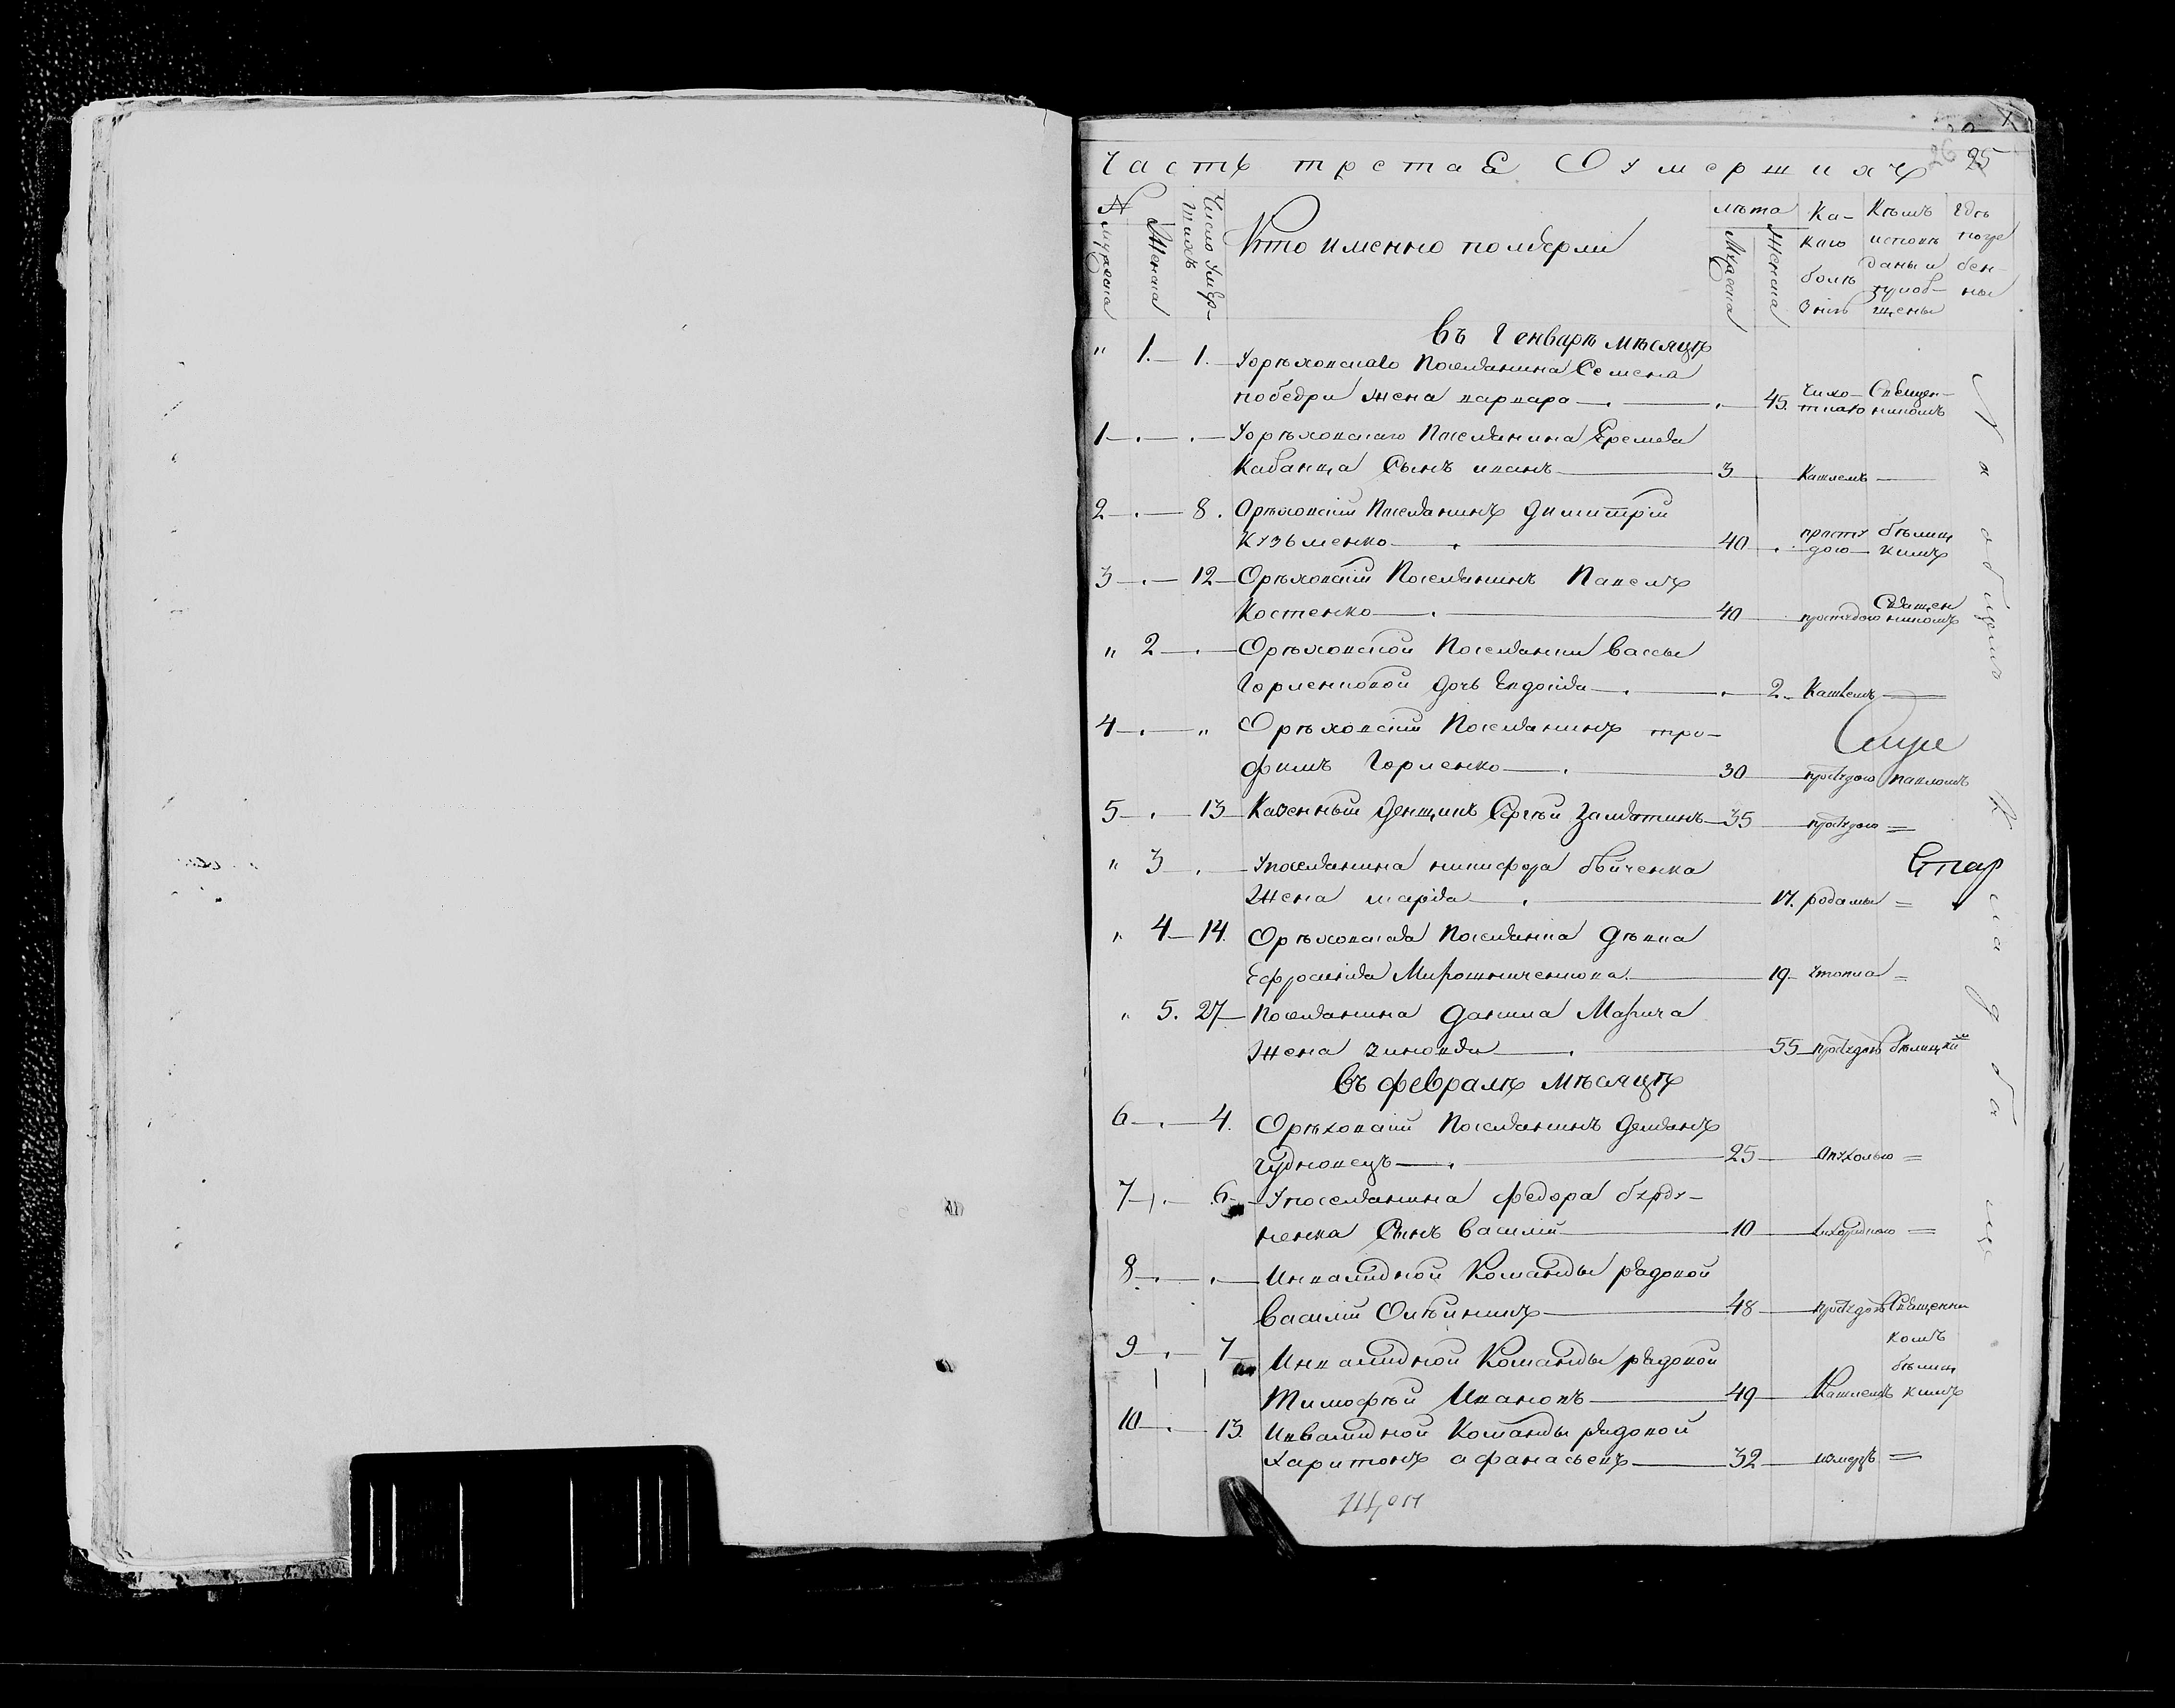 Часть третая О умершихъ 25
26
№ Мужеска Женска
Число умершихъ
Кто именно померли
лѣта Мужеска Женска
Ка-
каю
болѣ
знію
Кѣмъ
исповѣ
даны и
приоб-
щены
Гдѣ
погре
бен-
ны
Въ Генварѣ мѣсяцѣ
" 1. 1. Уорѣховскаго Поселянина Семена
победри жена варвара 45. Чихо- Священ-
ткаю никомъ
1 Уорѣховскаго Поселянина Еремея
Кабанца Сынъ иванъ 3 Кашлемъ
2 8. Орѣховскій Поселянинъ Димитрій
Кузьменко 40 просту бѣлиц
дою кимъ
3 12 Орѣховскій Поселянинъ Павелъ
Костенко 40 простудою Священ
никомъ
" 2 Орѣховской Поселянки Вассы
Горленковой дочь Евдокія 2 Кашлемъ
4 " Орѣховскій Поселянинъ тро-
фимъ Горленко 30 простудою павломъ
5 13 Казенный Денщикъ Сергѣй Замятинъ 35 простудою =
" 3 Упоселянина никифора бойченка
Жена марія 17. родамы =
" 4 14. Орѣховская Поселянка Дѣвка
Ефросинія Мирошниченкова 19 утопла =
" 5. 27 Поселянина Данила Мазича
Жена зиновія 55 простудою бѣлицкій
Въ февралѣ мѣсяцѣ
6 4. Орѣховскій Поселянинъ Демянъ
Чудновецъ 25 опухолью =
7 6 Упоселянина федора бурду-
ненка Сынъ Василій 10 лихорадкою =
8 Инвалидной Команды рядовой
Василій 48 простудою Священни
комъ
9 7 Инвалидной Команды рядовой бѣлиц
Тимофѣй Ивановъ 49 Кашлемъ кимъ
10 13 Инвалидной Команды рядовой
Харитонъ афанасьевъ 32 =
На общемъ кладбище